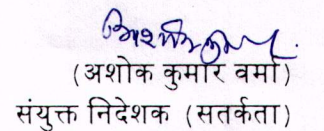 (अशोक कुमार वर्मा)
संयुक्त निदेशक (सतर्कता)